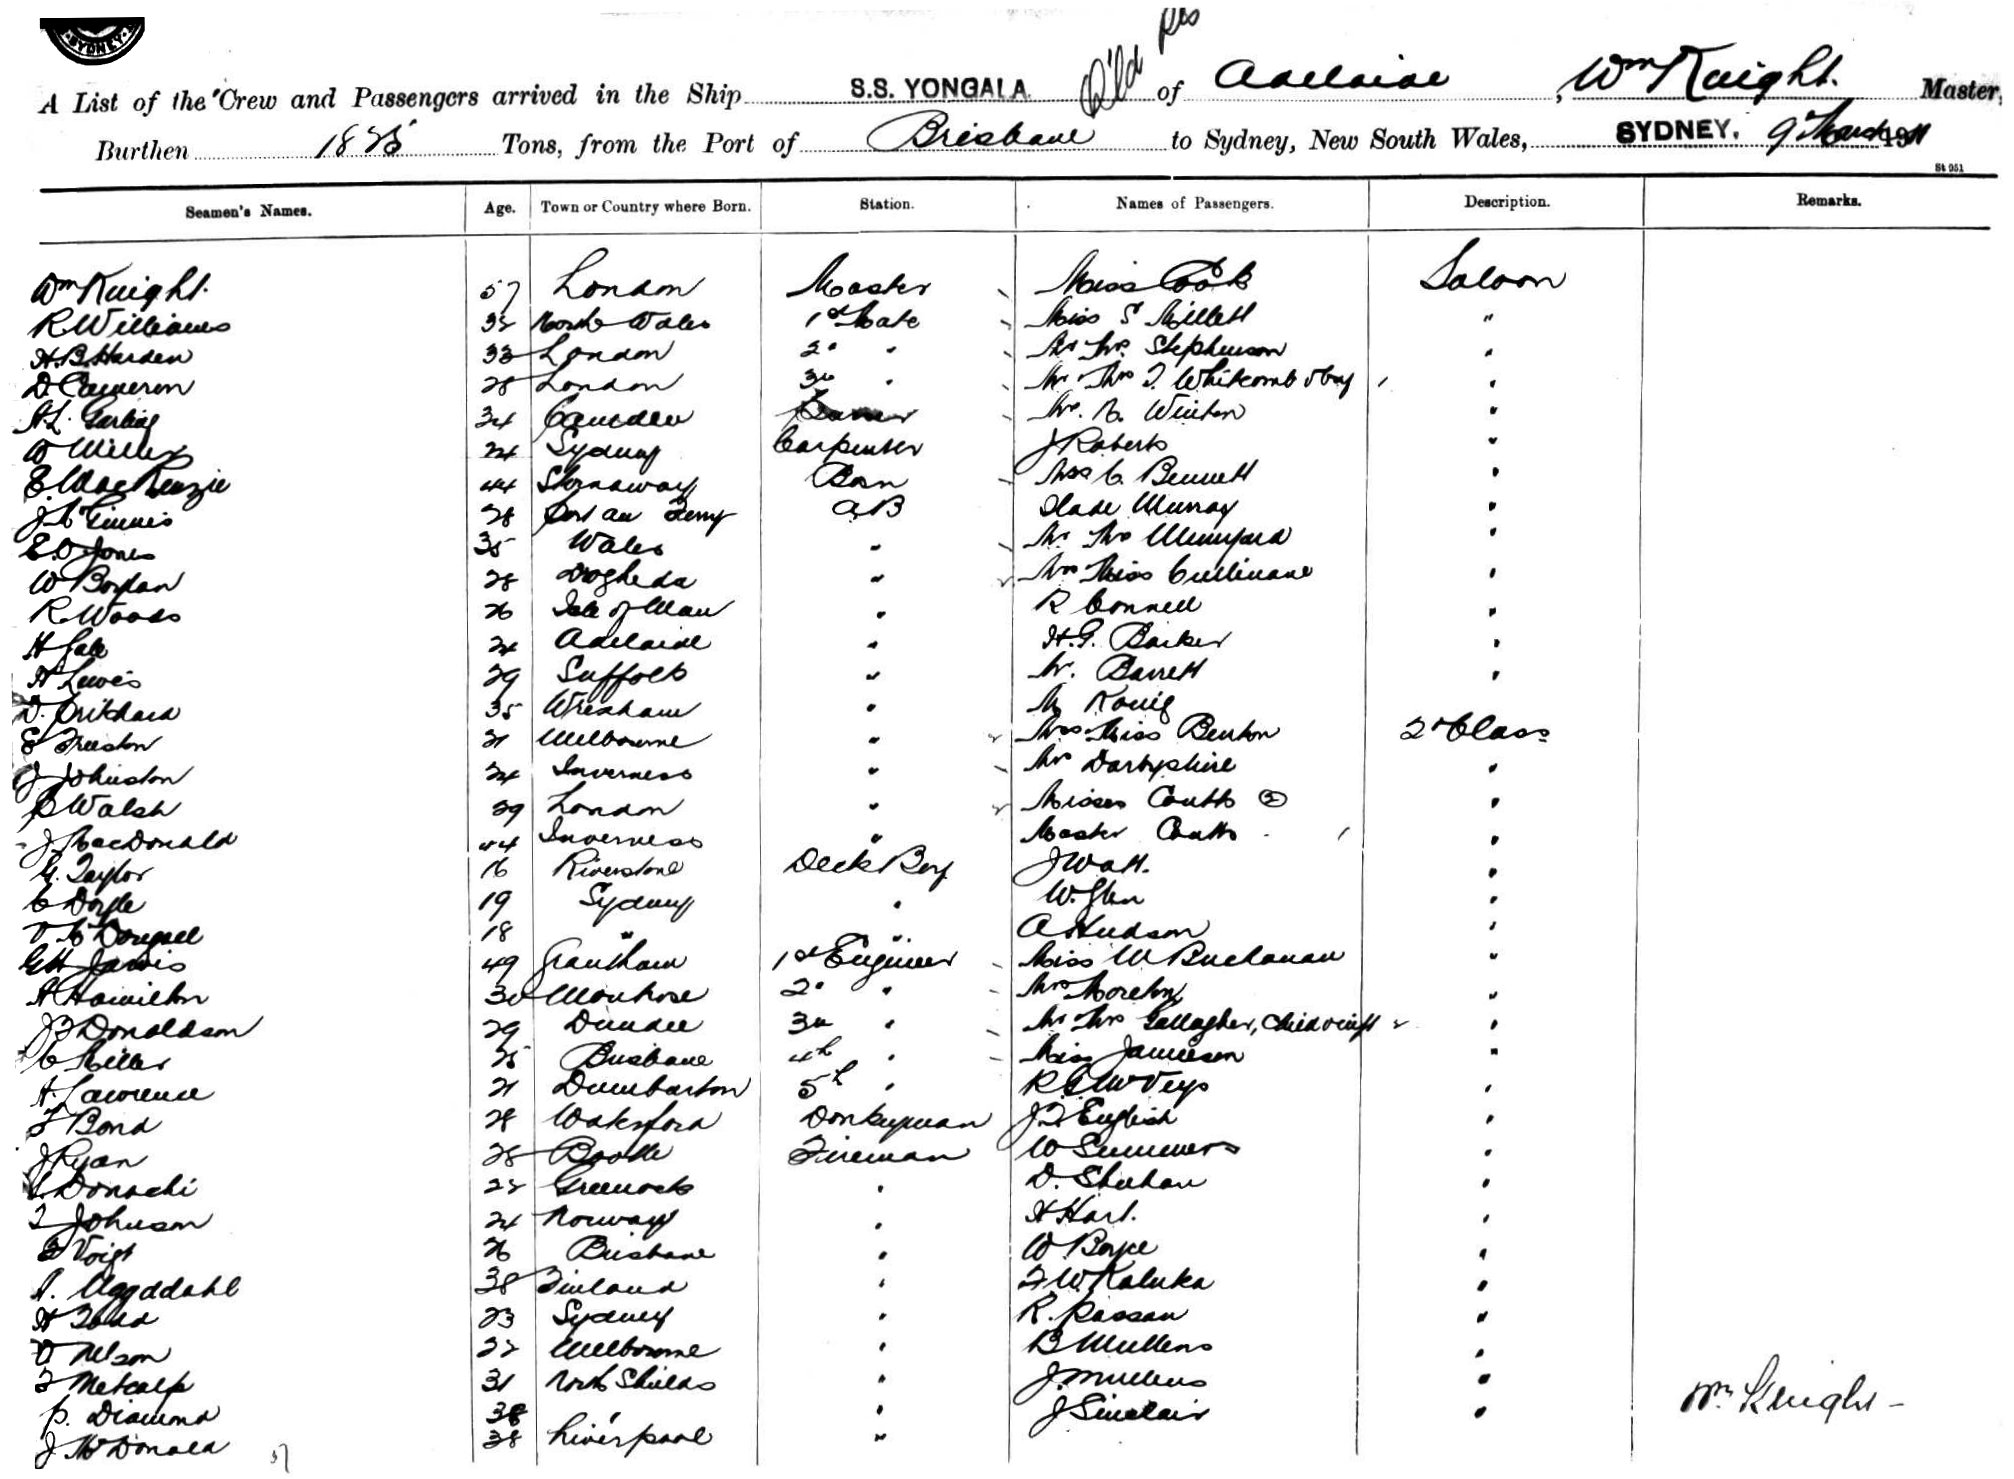 SYDNEY
A List of the Crew and Passengers arrived in the Ship S.S. YONGALA of Adelaide, Wm Knight. Master,
Burthen 1825 Tons, from the Port of Brisbane to Sydney, New South Wales, SYDNEY. 9 March 1911
St 051
Seamen's Names. Age. Town or Country where Born. Station. Names of Passengers. Description. Remarks.
Wm Knight. 57 London Master Miss Cook Saloon
R Williams 32 North Wales 1st Mate Miss S Millett "
H.B. Harden 33 London 2d " Mr Mrs Stephenson "
D Cameron 28 London 3d " Mr Mrs J. Whitcomb & boy "
H.L. Garling 34 Camden Mr. R. Winton "
W Miller 24 Sydney Carpenter J Roberts "
E MacKenzie 44 Stornaway Bosn Mrs C. Bennett "
J McGinnis 28 AB Slade Murray "
E.O Jones 35 Wales " Mr Mrs Mumford "
W Boylan 28 Drogheda " Mrs Miss Cullinane "
R Woods 26 Isle of Man " R Connell "
H Gale 24 Adelaide " H.G. Barker "
H Lewis 29 Suffolk " Mr. Barrett "
D. Pritchard 35 Wrexham " Mr Konig "
E Freeston 21 Melbourne " Mrs Miss Benton 2d Class
J Johnston 24 Inverness " Mrs Darbyshire "
P Walsh 29 London " Misses Coutts (2) "
J MacDonald 44 Inverness " Master Coutts "
G. Taylor 16 Riverstone Deck Boy J Watt. "
C Doyle 19 Sydney " W. Glen "
D McDougall 18 " " A Hudson "
GH Jarvis 49 Grantham 1st Engineer Miss M Buchanan "
A Hamilton 30 Montrose 2d " Mrs Moreton "
J B Donaldson 29 Dundee 3d " Mr Mrs Gallagher, child & inft "
C Miller 25 Brisbane 4th " Miss Jamieson "
A. Lawrence 21 Dumbarton 5th " R C McVeys "
F Bond 28 Waterford Donkeyman J.F. English "
J Ryan 28 Bootle Fireman W Summers "
Donachi 22 Greenock " D. Sheehan "
J Johnson 24 Norway " H Hart. "
Voigt 26 Brisbane " W Boyce "
A. Uggddahl 38 Finland " F.W. Kaluka "
H Todd 23 Sydney " R. Passau "
O Nelson 22 Melbourne " B Mullens "
F Metcalfe 31 North Shields " J. Mullens "
P. Diamond 38 " " J Sinclair "
J. McDonald 38 Liverpool "
Wm Knight
37